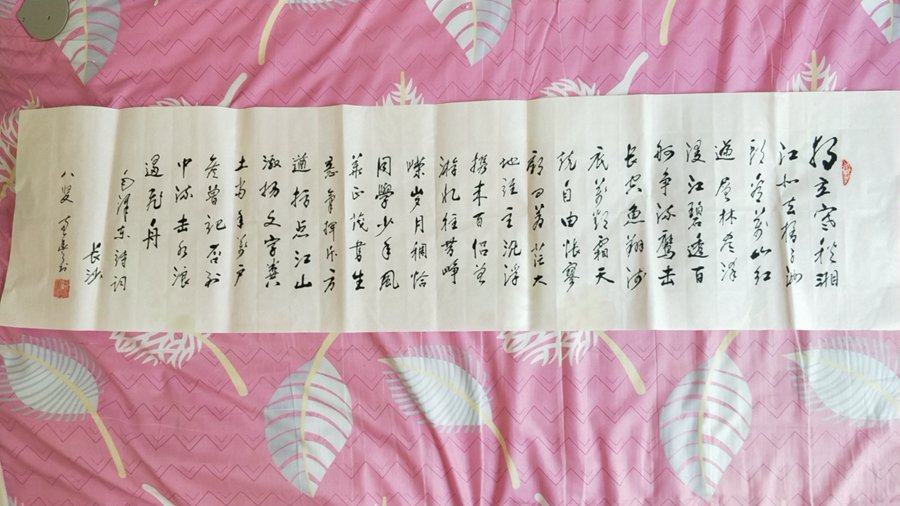 独立寒秋湘
江北去橘子洲
头看万山红
遍层林尽染
漫江碧透百
舸争流鹰击
长空鱼翔浅
底万类霜天
竞自由怅寥
廓问苍茫大
地谁主沉浮
携来百侣曾
游忆往昔峥
嵘岁月稠恰
同學少年风
华正茂書生
意气挥斥方
遒指点江山
激扬文字粪
土当年万户
侯曾记否到
中流击水浪
遏飞舟
毛泽东诗词
长沙
八叟